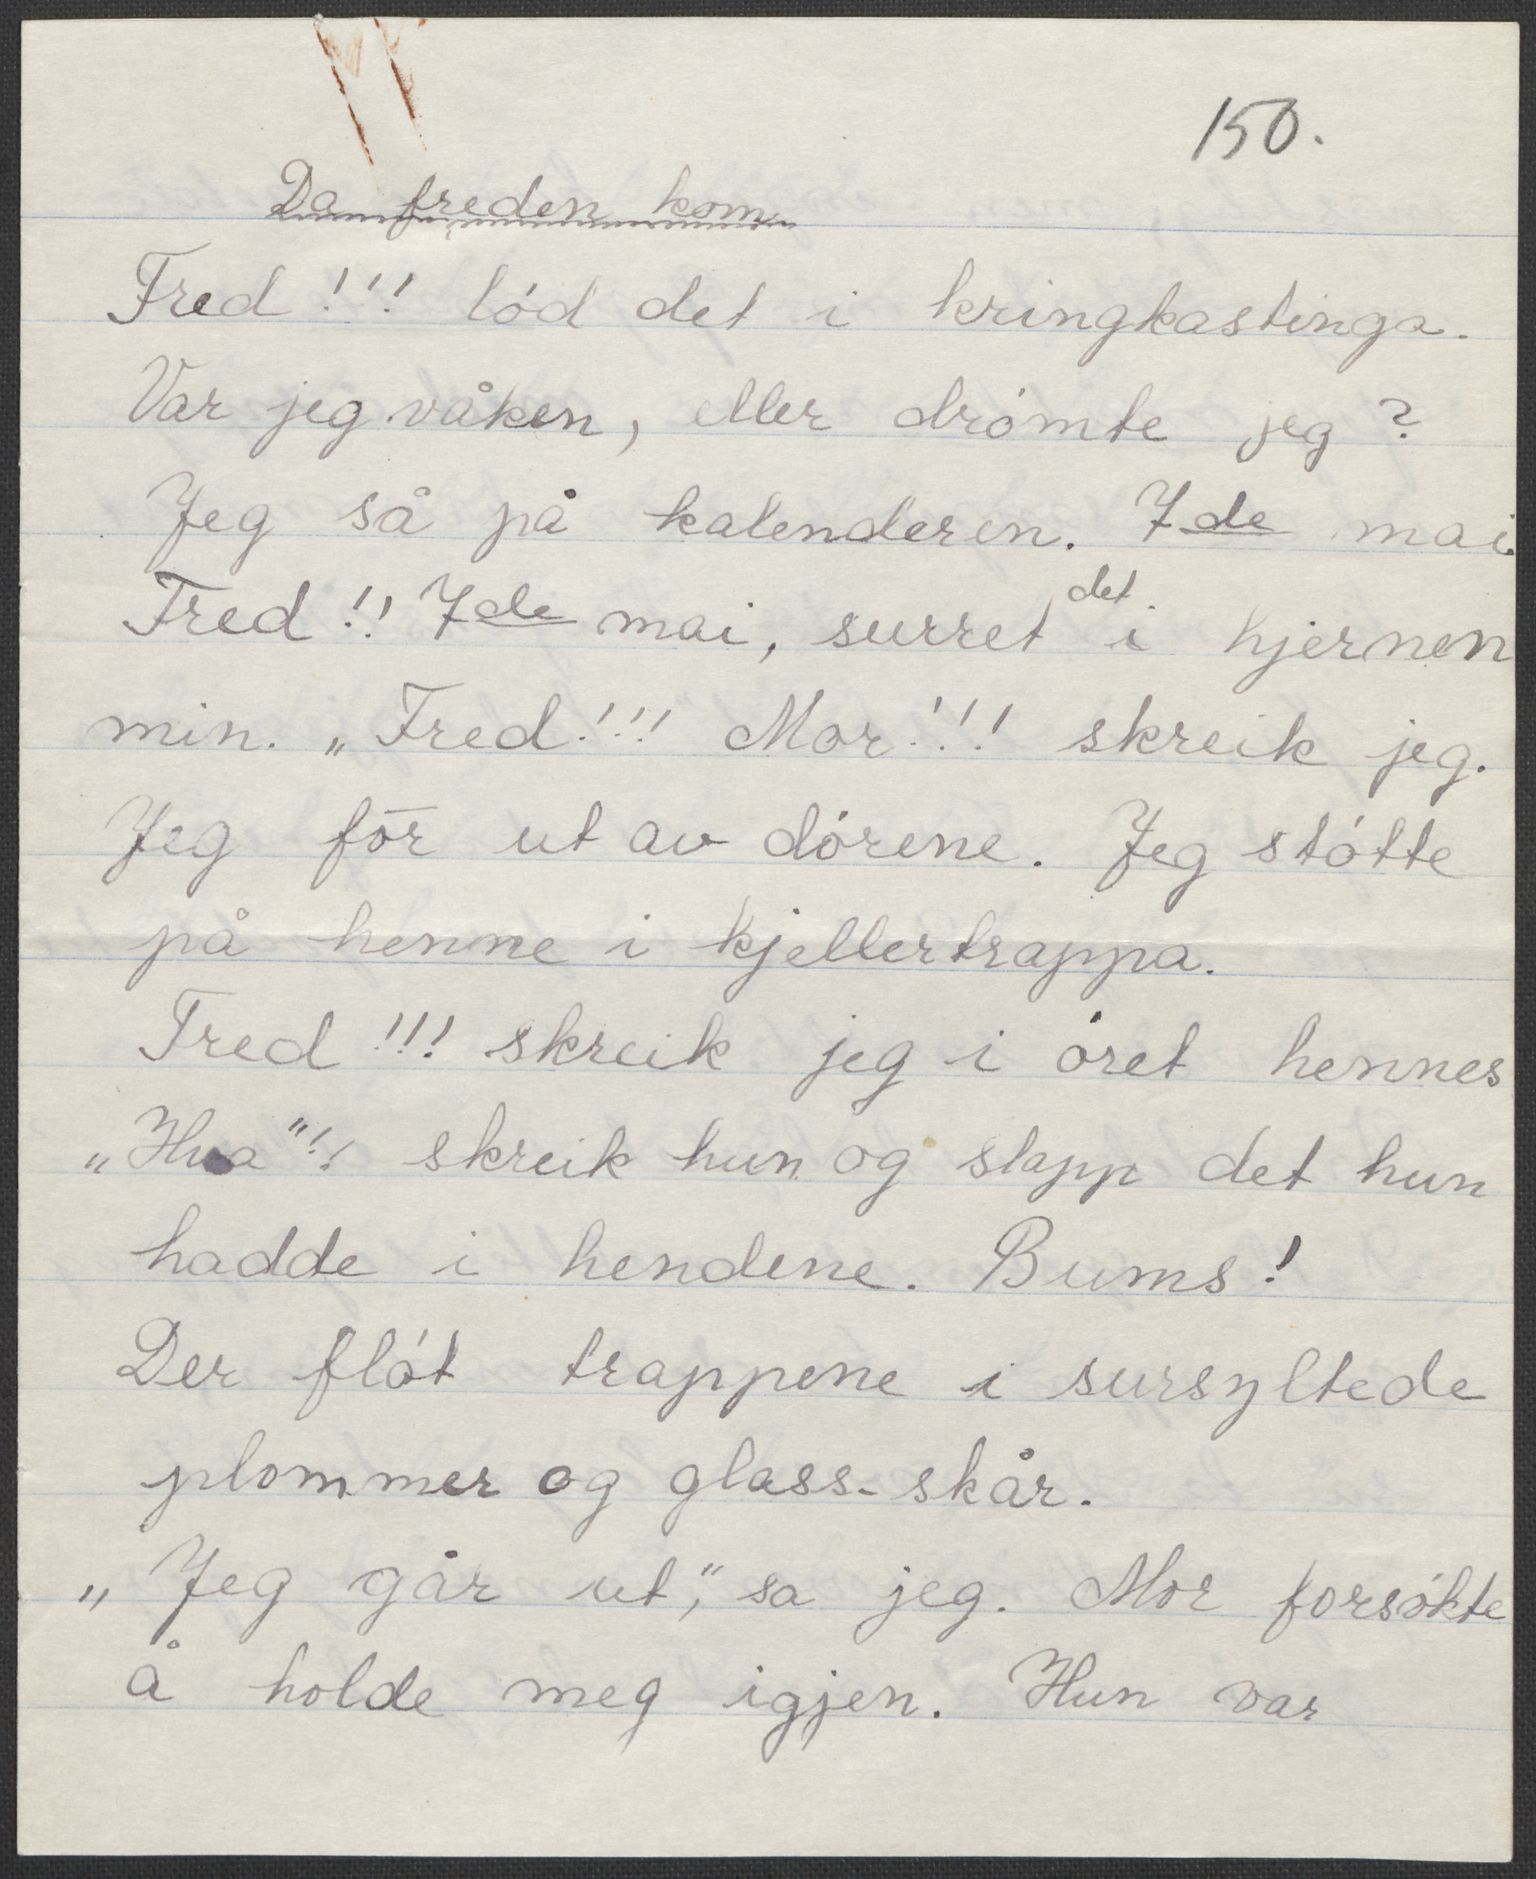 150.
Da freden kom
Fred!!! lód det i kringkastinga.
Var jeg våken, eller drómte jeg?
Jeg så på kalenderen. 7de mai.
Fred!! 7de mai, surret det i hjernen
min. „Fred!!! Mor!!! skreik jeg.
Jeg fōr ut av dórene. Jeg stótte
på henne i kjellertrappa.
Fred!!! skreik jeg i óret hennes
„Hva"!! skreik hun og slapp det hun
hadde i hendene. Bums!
Der flót trappene i sursyltede
plommer og glass-skår.
„Jeg går ut", sa jeg. Mor forsókte
å holde meg igjen. Hun var